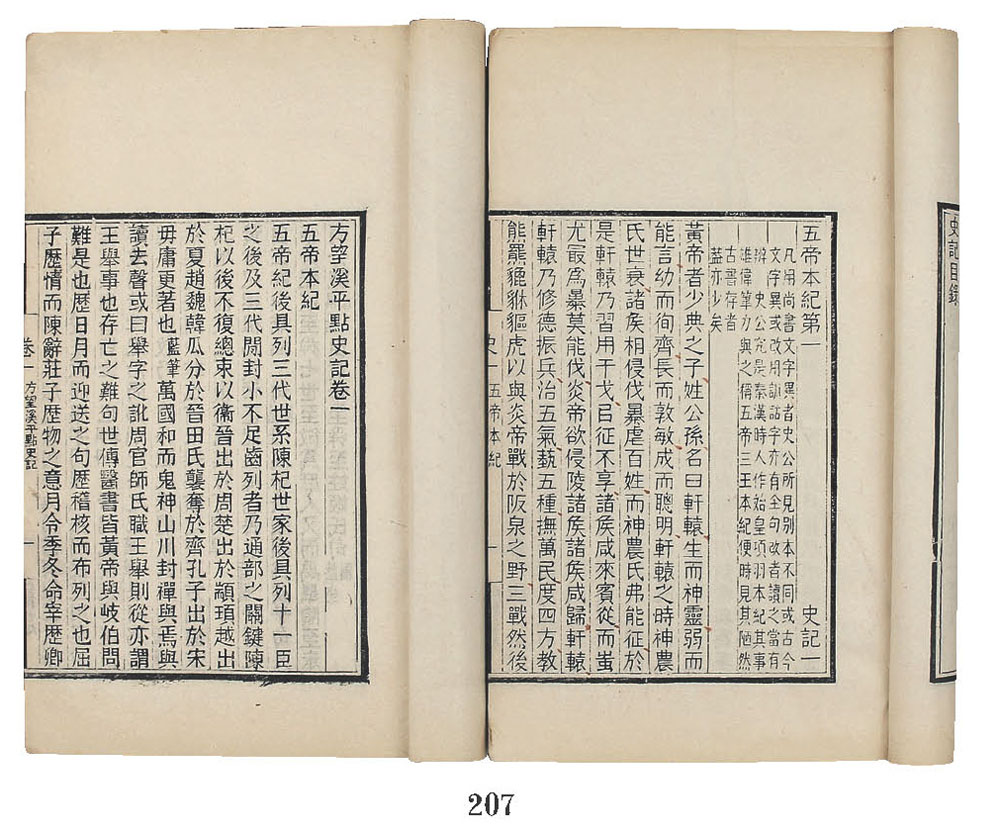 史記目錄
五帝本紀第一 史記一
凡用尚書文字異者史公所見别本不同或古今
文字異或改用訓詁字亦有全句改者讀之當有
辨 史公完是秦漢時人作始皇項羽本紀其事
雄偉筆力與之偁五帝三王本紀便時見其陋然
古書存者
蓋亦少矣
黃帝者少典之子姓公孫名曰軒轅生而神靈弱而
能言幼而徇齊長而敦敏成而聰明軒轅之時神農
氏世衰諸矦相侵伐暴虐百姓而神農氏弗能征於
是軒轅乃習用干戈㠯征不享諸矦咸來賓從而蚩
尤最爲暴莫能伐炎帝欲侵陵諸矦諸矦咸歸軒轅
軒轅乃修德振兵治五氣蓺五種撫萬民度四方教
熊羆貔貅貙虎以與炎帝戰於阪泉之野三戰然後
史一 五帝本紀
方望溪平點史記卷一
五帝本紀
五帝紀後具列三代世系陳杞世家後具列十一臣
之後及三代閒封小不足齒列者乃通部之關鍵陳
杞以後不復總束以衞晉出於周楚出於顓頊越出
於夏趙魏韓瓜分於晉田氏襲奪於齊孔子出於宋
毋庸更著也藍筆萬國和而鬼神山川封禪與焉與
讀去聲或曰舉字之訛周官師氏職王舉則從亦謂
王舉事也存亡之難句世傳醫書皆黃帝與岐伯問
難是也歷日月而迎送之句歷稽核而布列之也屈
子歷情而陳辭莊子歷物之意月令季冬命宰歷卿
卷一 方望溪平點史記
207